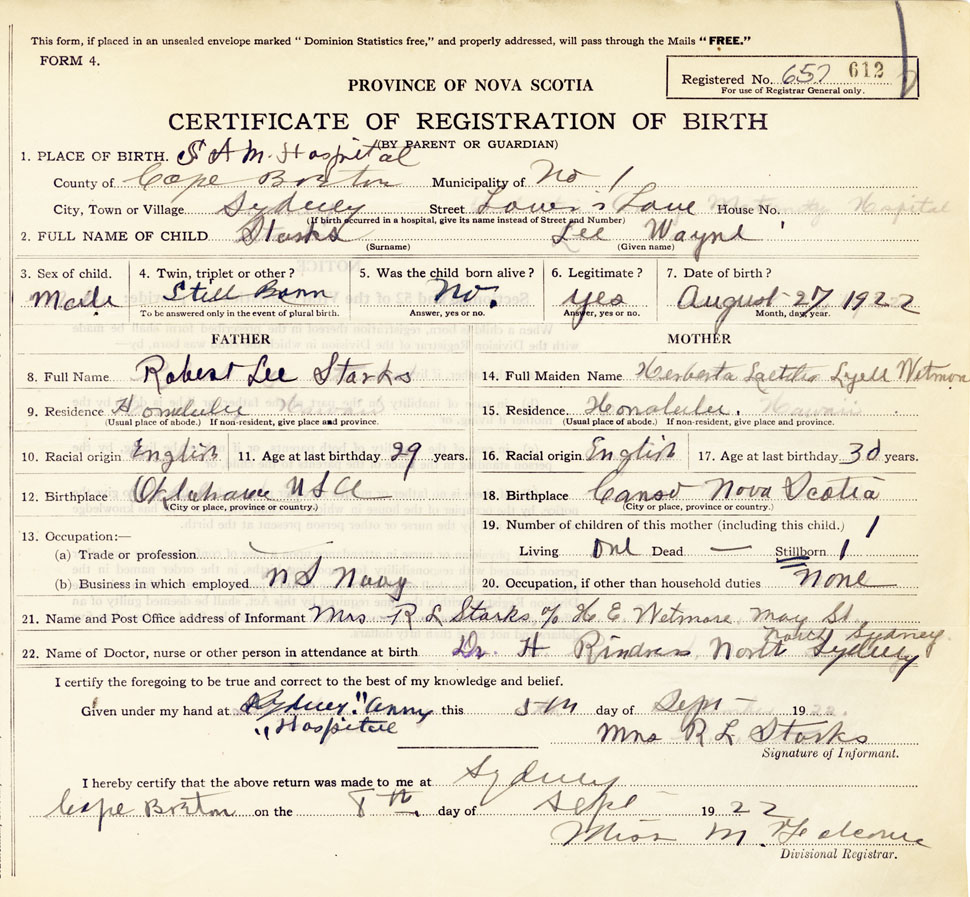 This form, if placed in an unsealed envelope marked "Dominion Statistics free," and properly addressed, will pass through the Mails "FREE."
FORM 4.
Registered No. 657 612
For use of Registrar General only.
PROVINCE OF NOVA SCOTIA
CERTIFICATE OF REGISTRATION OF BIRTH
(BY PARENT OR GUARDIAN)
1. PLACE OF BIRTH. S A M. Hospital
County of Cape Breton Municipality of No 1
City, Town or Village Sydney Street Lane Maternity Hospital House No.
(If birth occurred in a hospital, give its name instead of Street and Number)
2. FULL NAME OF CHILD Starks Lee Wayne
(Surname) (Given name)
3. Sex of child. 4. Twin, triplet or other? 5. Was the child born alive? 6. Legitimate? 7. Date of birth?
Male Still Born No. yes August 27 1922
To be answered only in the event of plural birth. Answer, yes or no. Answer, yes or no. Month, day, year.
FATHER MOTHER
8. Full Name Robert Lee Starks 14. Full Maiden Name Herberta Laetitia Lyell Wetmore
9. Residence Honolulu Hawaii 15. Residence. Honolulu. Hawaii
(Usual place of abode.) If non-resident, give place and province. (Usual place of abode.) If non-resident, give place and province.
10. Racial origin English 11. Age at last birthday 29 years. 16. Racial origin English 17. Age at last birthday 30 years.
12. Birthplace USA 18. Birthplace Canso Nova Scotia
(City or place, province or country.) (City or place, province or country.)
13. Occupation:— 19. Number of children of this mother (including this child.) 1
(a) Trade or profession Living one Dead — Stillborn 1
(b) Business in which employed Navy 20. Occupation, if other than household duties None
21. Name and Post Office address of Informant Mrs R L Starks c/o H E Wetmore May St
North Sydney.
22. Name of Doctor, nurse or other person in attendance at birth Dr. H North Sydney
I certify the foregoing to be true and correct to the best of my knowledge and belief.
Given under my hand at Sydney this 5th day of Sept 1922.
Hospital
Mrs R L Starks
Signature of Informant.
I hereby certify that the above return was made to me at Sydney
Cape Breton on the 8th. day of Sept 1922
Miss M.
Divisional Registrar.